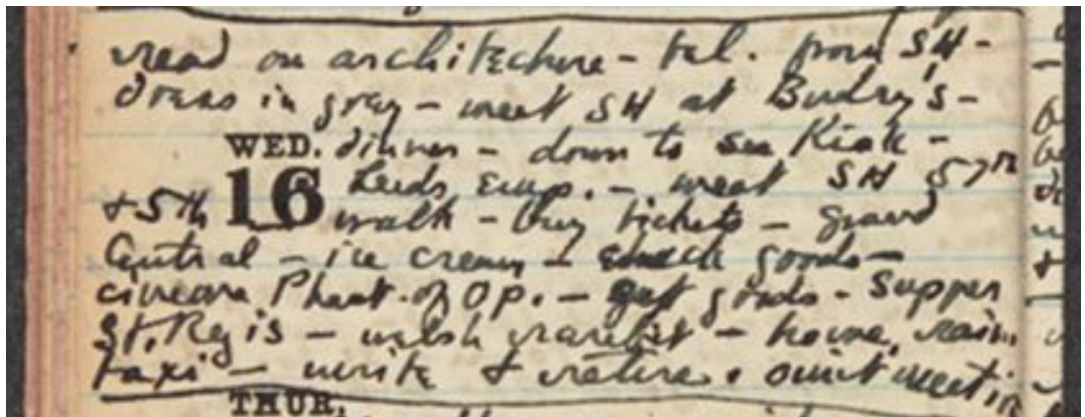 read on architecture - tel. from SH -
dress in gray - meet SH at
WED. dinner - down to see Kirk -
16 Leeds emp. - meet SH 57th
+ 5th walk - buy tickets - Grand
Central - ice cream - check goods -
cinema Phant. of Op. - get goods - supper
St. Regis - welsh rarebit - home, rain,
taxi - write + retire. omit meeting
THUR.